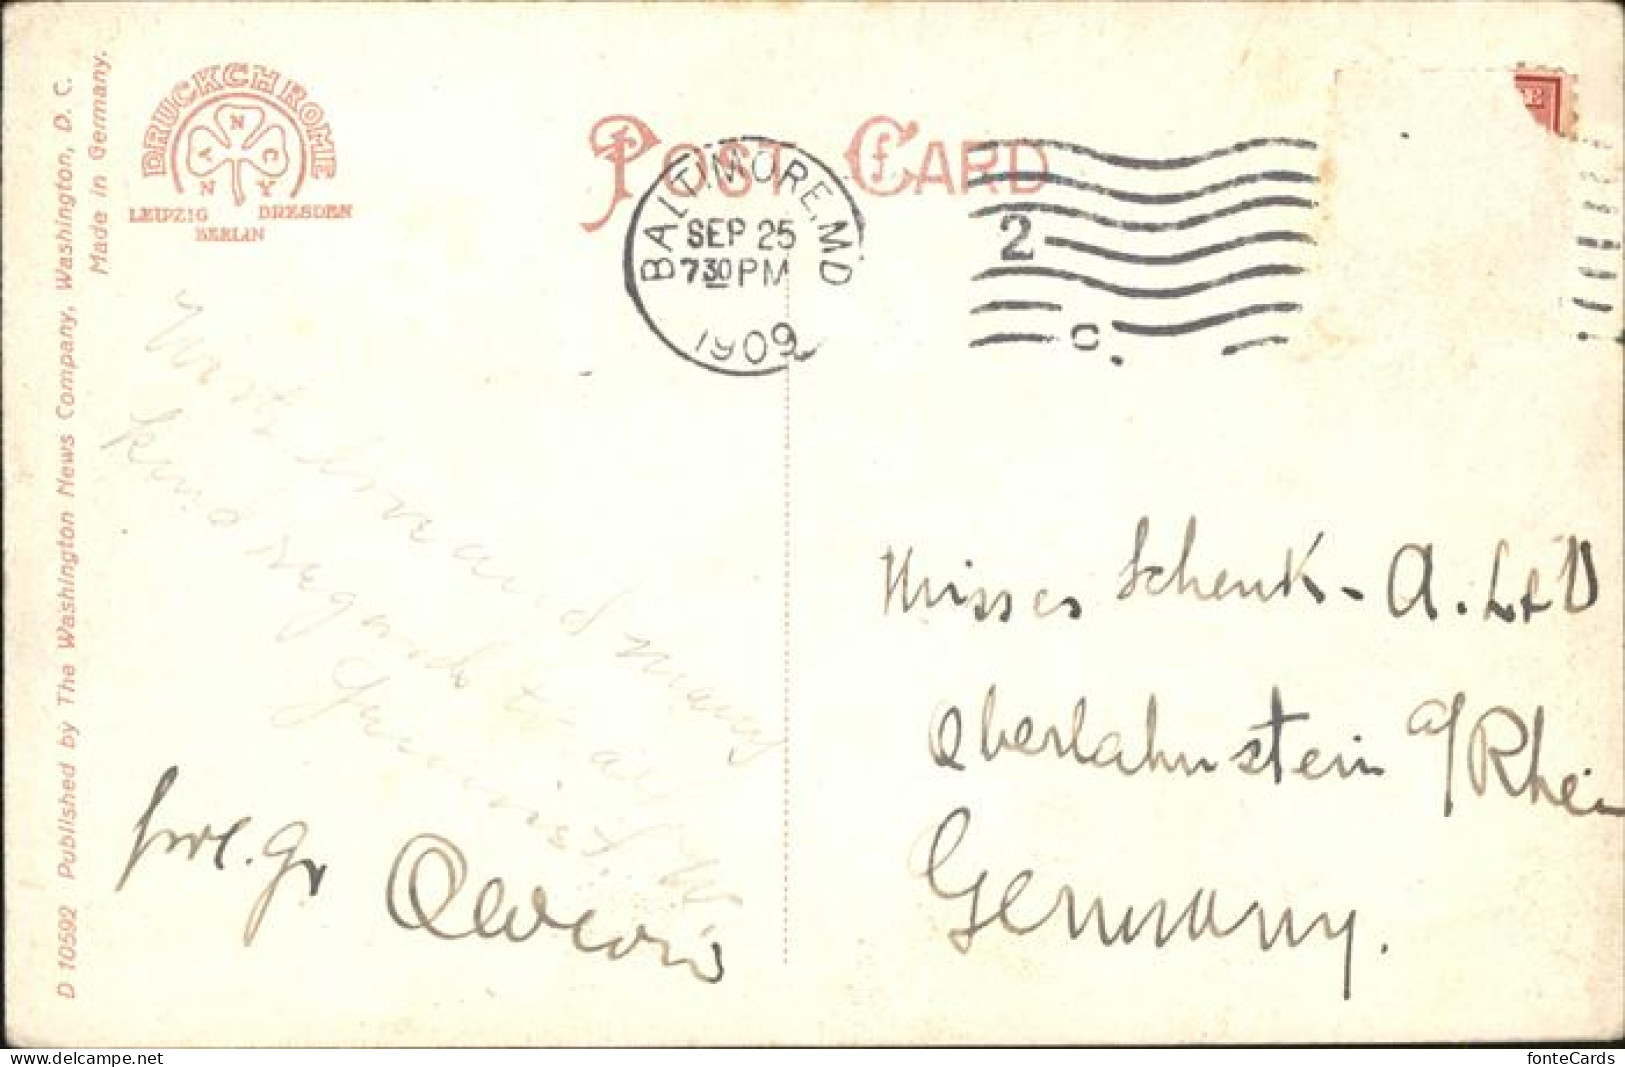 D 10592 Published by The Washington News Company, Washington, D. C.
Made in Germany.
DRUCKCHROME
A N C
N Y
LEIPZIG DRESDEN
BERLIN
POST CARD
BALTIMORE, MD
SEP 25
7 30 PM
1909
2
C
and many
kind regards to all
Misses Schenk - A.
Oberlahnstein a/Rhein
Germany.
www.delcampe.net
fonteCards